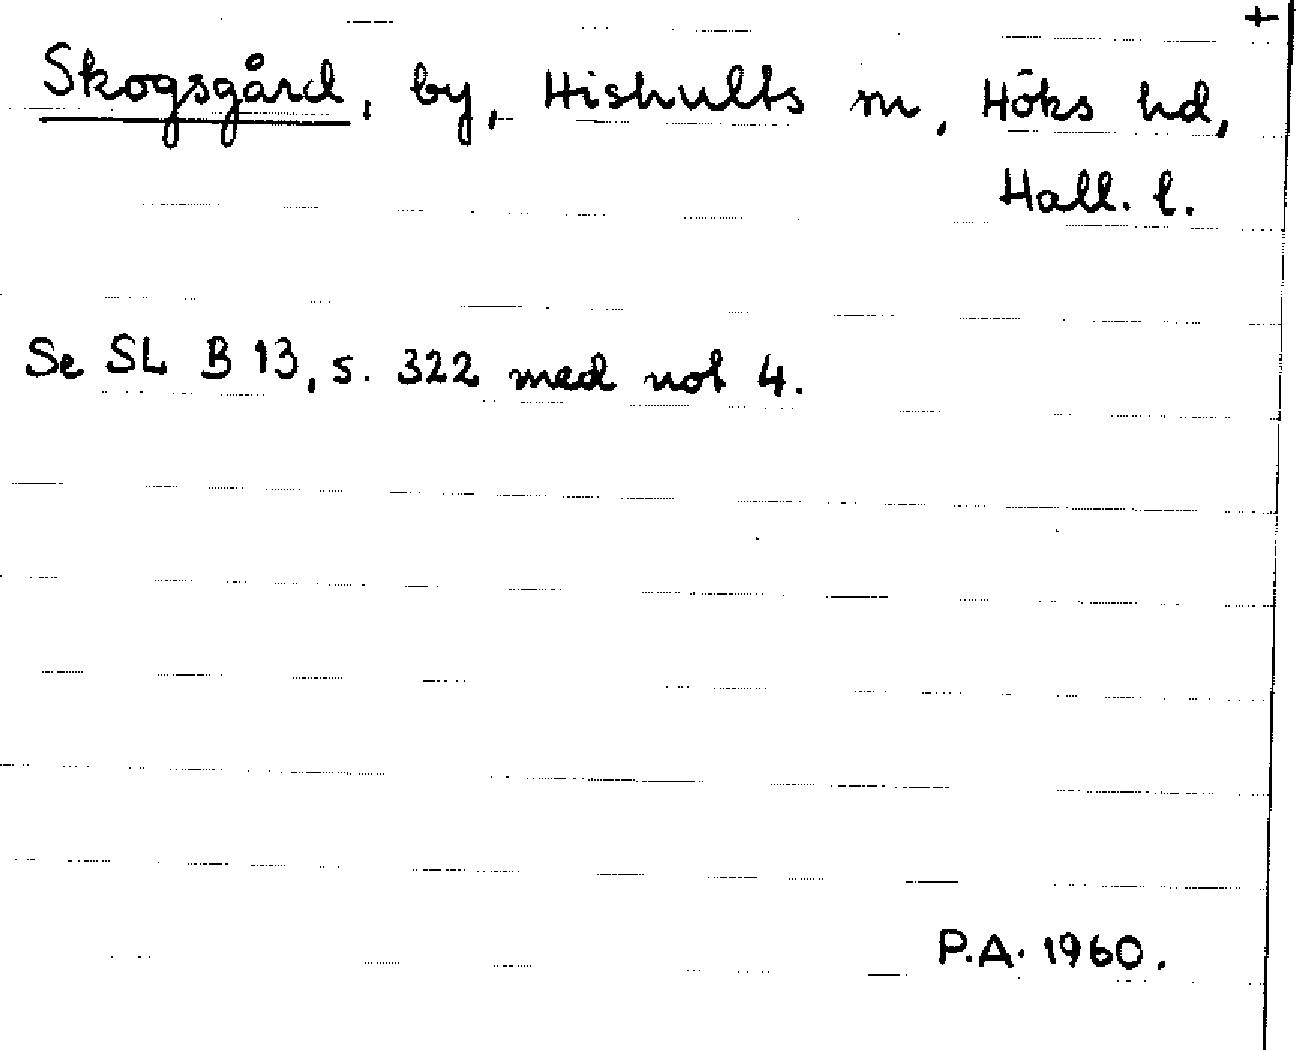 +
Skogsgård, by, Hishults sn, Höks hd,
Hall. l.
Se SL B 13, s. 322 med not 4.
P.A. 1960.